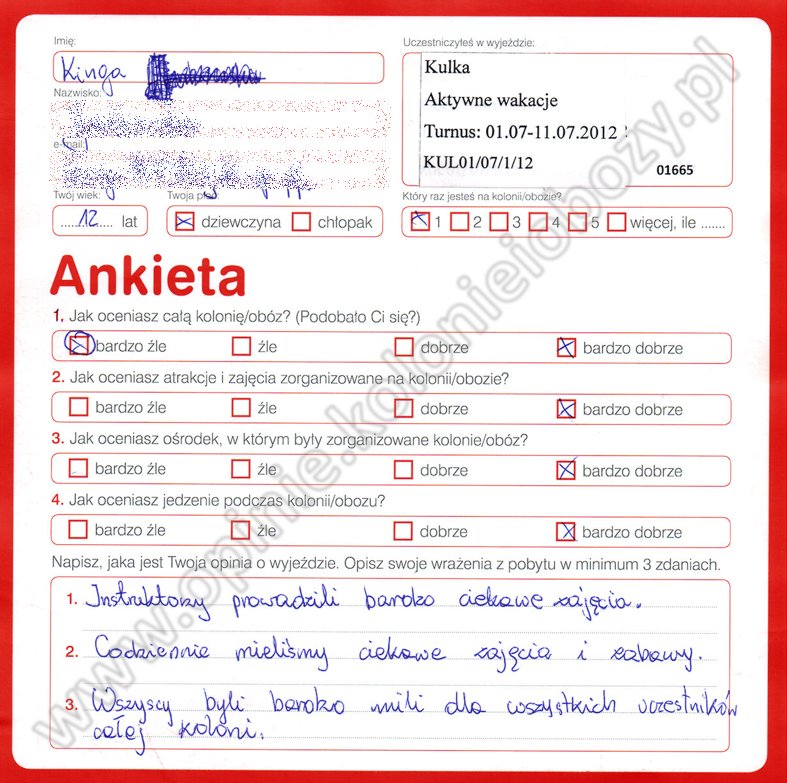 Imię:
Kinga
Uczestniczyłeś w wyjeździe:
Kulka
Aktywne wakacje
Turnus: 01.07-11.07.2012
KUL01/07/1/12
01665
Nazwisko:
e-mail:
Twój wiek:
12 lat
Twoja płeć:
dziewczyna chłopak
Który raz jesteś na kolonii/obozie?
1 2 3 4 5 więcej, ile .......
Ankieta
1. Jak oceniasz całą kolonię/obóz? (Podobało Ci się?)
bardzo źle źle dobrze bardzo dobrze
2. Jak oceniasz atrakcje i zajęcia zorganizowane na kolonii/obozie?
bardzo źle źle dobrze bardzo dobrze
3. Jak oceniasz ośrodek, w którym były zorganizowane kolonie/obóz?
bardzo źle źle dobrze bardzo dobrze
4. Jak oceniasz jedzenie podczas kolonii/obozu?
bardzo źle źle dobrze bardzo dobrze
Napisz, jaka jest Twoja opinia o wyjeździe. Opisz swoje wrażenia z pobytu w minimum 3 zdaniach.
1. Instruktorzy prowadzili bardzo ciekawe zajęcia.
2. Codziennie mieliśmy ciekawe zajęcia i zabawy.
3. Wszyscy byli bardzo mili dla wszystkich uczestników
całej koloni.
www.opinie.kolonieiobozy.pl